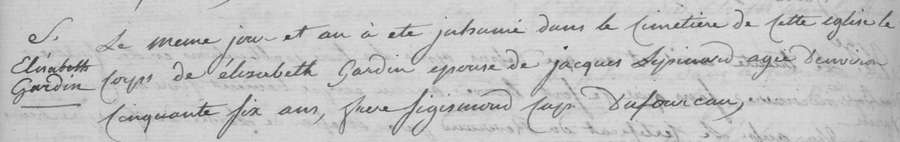 S.
Elisabeth
Gardin
Le meme jour et an à eté inhumé dans le cimetière de cette eglise le
corps de élisabeth Gardin epouse de jacques agée d'environ
cinquante six ans, frere Sigismond cap.